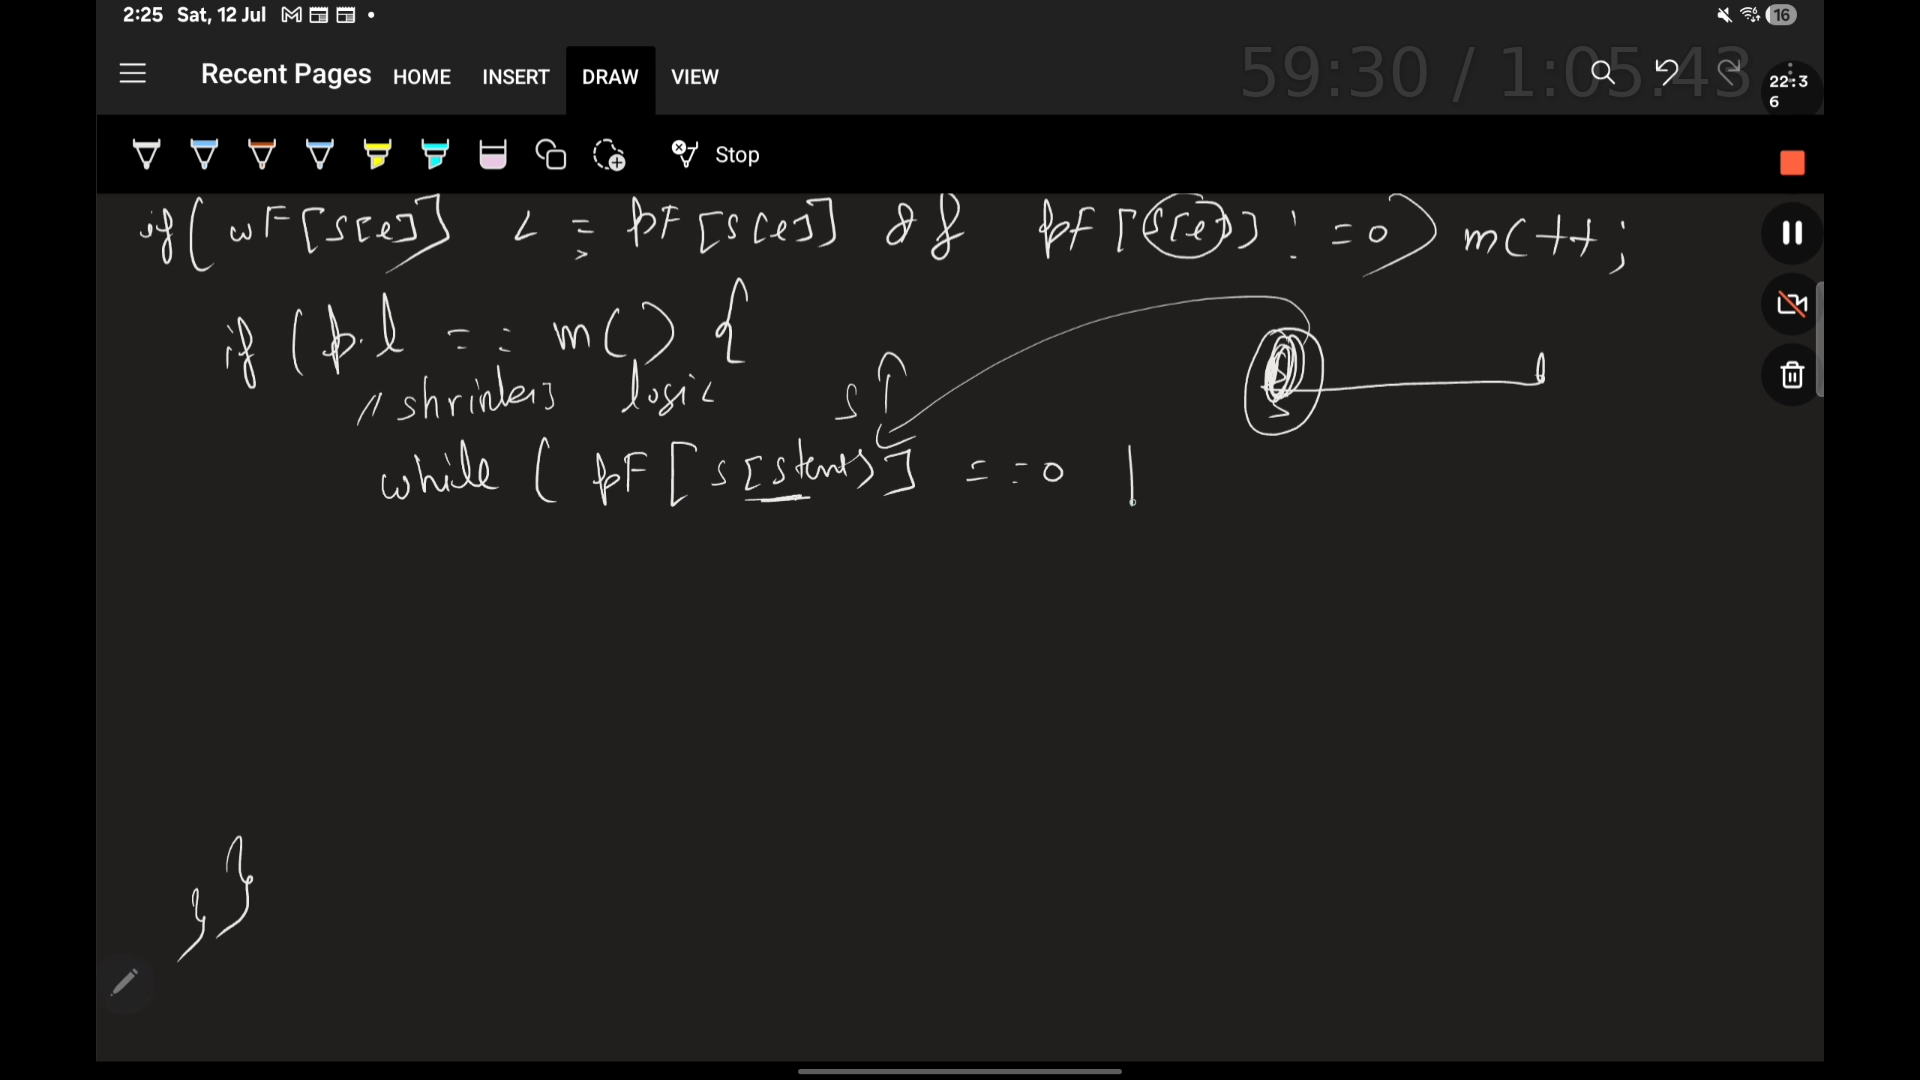 2:25 Sat, 12 Jul 16
Recent Pages HOME INSERT DRAW VIEW 59:30 / 1:05:43 22:3
6
Stop
if( wF[s[e]] <= pF[s[e]] && pF[s[e]] != 0) mC++;
if (p.l == mC) {
// logic s↑
while ( pF[s[start]] == 0 |
s
}
}